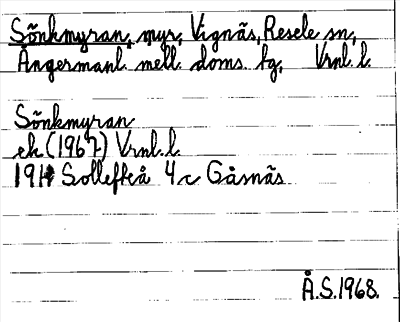 Sönkmyran, myr, Vignäs, Resele sn,
Ångermanl. mell. doms. fg, Vrnl. l.
Sönkmyran
ek (1967) Vrnl. l.
1911 Sollefteå 4 c Gåsnäs
Å.S. 1968.